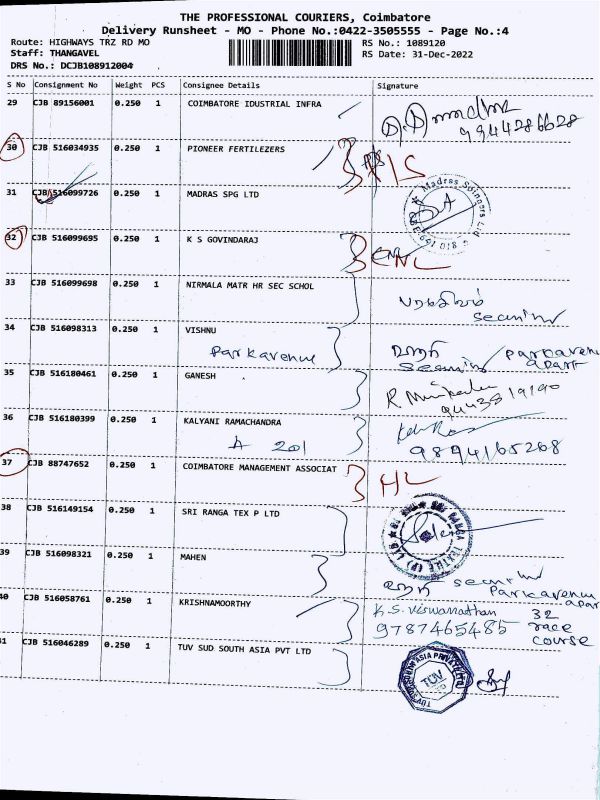 THE PROFESSIONAL COURIERS, Coimbatore
Delivery Runsheet - MO - Phone No.:0422-3505555 - Page No.:4
Route: HIGHWAYS TRZ RD MO
RS No.: 1089120
Staff: THANGAVEL
RS Date: 31-Dec-2022
DRS No.: DCJB108912004
S No Consignment No Weight PCS Consignee Details Signature
29 CJB 89156001 0.250 1 COIMBATORE IDUSTRIAL INFRA
9944286628
30 CJB 516034935 0.250 1 PIONEER FERTILEZERS
31 CJB 516099726 0.250 1 MADRAS SPG LTD
Madras Spinners Ltd
32 CJB 516099695 0.250 1 K S GOVINDARAJ
33 CJB 516099698 0.250 1 NIRMALA MATR HR SEC SCHOL
34 CJB 516098313 0.250 1 VISHNU
Parkavenue
Parkavenu
apart
35 CJB 516180461 0.250 1 GANESH
36 CJB 516180399 0.250 1 KALYANI RAMACHANDRA
A 201
9894165268
37 CJB 88747652 0.250 1 COIMBATORE MANAGEMENT ASSOCIAT
HL
38 CJB 516149154 0.250 1 SRI RANGA TEX P LTD
39 CJB 516098321 0.250 1 MAHEN
Parkavenu
apar
40 CJB 516058761 0.250 1 KRISHNAMOORTHY
K.S. Viswanathan 32
9787465485 race
course
41 CJB 516046289 0.250 1 TUV SUD SOUTH ASIA PVT LTD
TUV